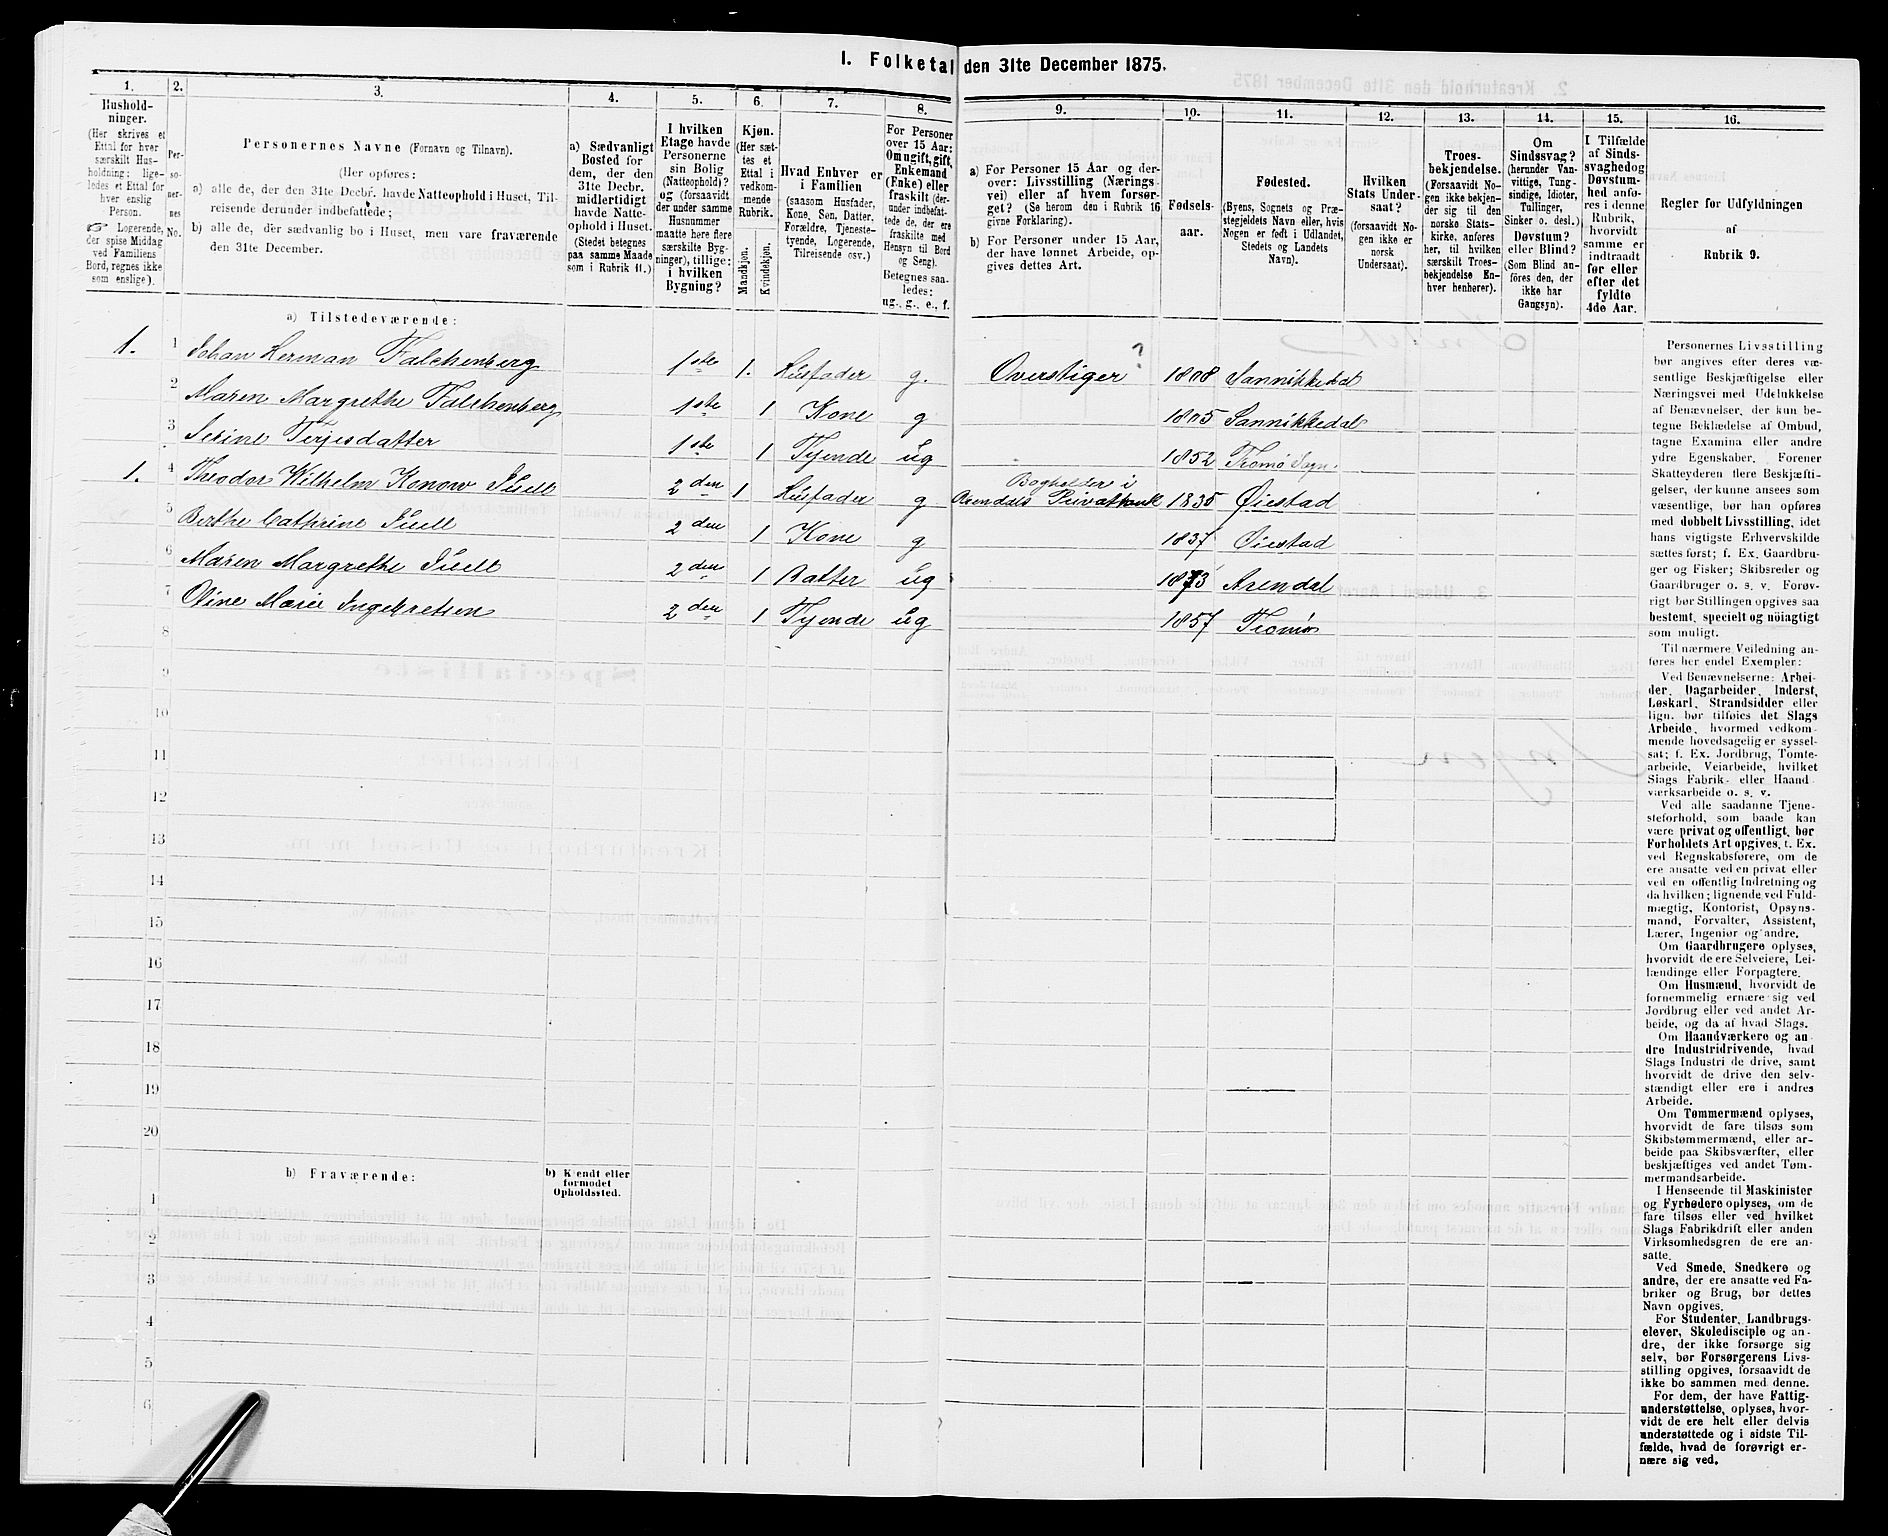 I. Folketal den 31te December 1875.
1. 2. 3. 4. 5. 6. 7. 8. 9. 10. 11. 12. 13. 14. 15. 16.
Hushold-
ninger.
(Her skrives et
Ettal for hver
særskilt Hus-
holdning: lige-
ledes et Ettal for
hver enslig
Person.
☞ Logerende,
der spise Middag
ved Familiens
Bord, regnes ikke
som enslige).
Per-
so-
ner-
nes
No.
Personernes Navne (Fornavn og Tilnavn).
(Her opføres:
a) alle de, der den 31te Decbr. havde Natteophold i Huset, Til-
reisende derunder indbefattede;
b) alle de, der sædvanlig bo i Huset, men vare fraværende
den 31te December.
a) Sædvanligt
Bosted for
dem, der den
31te Decbr.
midlertidigt
havde Natte-
ophold i Huset.
(Stedet betegnes
paa samme Maade
som i Rubrik 11.)
I hvilken
Etage havde
Personerne
sin Bolig
(Natteophold)?
og (forsaavidt
der under samme
Husnummer
maatte høre flere
særskilte Byg-
ninger), tillige:
i hvilken
Bygning?
Kjøn.
(Her sæt-
tes et
Ettal i
vedkom-
mende
Rubrik.
Mandkjøn.
Kvindekjøn.
Hvad Enhver er
i Familien
(saasom Husfader,
Kone, Søn, Datter,
Forældre, Tjeneste-
tyende, Logerende,
Tilreisende osv.)
For Personer
over 15 Aar:
Om ugift, gift,
Enkemand
(Enke) eller
fraskilt (der-
under indbefat-
tede de, der ere
fraskilte med
Hensyn til Bord
og Seng).
Betegnes saa-
ledes:
ug., g., e., f.
a) For Personer 15 Aar og der-
over: Livsstilling (Nærings-
vei) eller af hvem forsør-
get? (Se herom den i Rubrik 16
givne Forklaring).
b) For Personer under 15 Aar,
der have lønnet Arbeide, op-
gives dettes Art.
Fødsels-
aar.
Fødested.
(Byens, Sognets og Præ-
stegjeldets Navn eller, hvis
Nogen er født i Udlandet,
Stedets og Landets
Navn).
Hvilken
Stats Under-
saat?
(forsaavidt No-
gen ikke er
norsk
Undersaat).
Troes-
bekjendelse.
(Forsaavidt No-
gen ikke bekjen-
der sig til den
norske Stats-
kirke, anføres
her, til hvilken
særskilt Troes-
bekjendelse En-
hver henhører).
Om
Sindssvag?
(herunder Van-
vittige, Tung-
sindige, Idioter,
Tullinger,
Sinker o. desl.)
Døvstum?
eller Blind?
(Som Blind an-
føres den, der
ikke har
Gangsyn).
I Tilfælde
af Sinds-
svaghed og
Døvstum-
hed anfø-
res i denne
Rubrik,
hvorvidt
samme er
indtraadt
før eller
efter det
fyldte
4de Aar.
Regler for Udfyldningen
af
Rubrik 9.
a) Tilstedeværende:
1. 1 Johan Herman Falchenberg 1ste 1. Husfader g. Overstiger ? 1808 Sannikkedal
2 Maren Margrethe Falchenberg 1ste 1 Kone g 1805 Sannikkedal
3 Serine Terjesdatter 1ste 1 Tyende ug 1852 Tromø Sogn.
1. 4 Theodor Wilhelm Konow Juell 2den 1 Husfader g Bogholder i
Arendals Privatbank 1835 Øiestad
5 Berthe Cathrine Juell 2den 1 Kone g 1837 Øiestad
6 Maren Margrethe Juell 2den 1 Datter ug 1873 Arendal
7 Oline Marie Ingebretsen 2den 1 Tyende ug 1857 Tromø
8
9
10
11
12
13
14
15
16
17
18
19
20
b) Fraværende:
b) Kjendt eller
formodet
Opholdssted.
1
2
3
4
5
6
Personernes Livsstilling
bør angives efter deres væ-
sentlige Beskjæftigelse eller
Næringsvei med Udelukkelse
af Benævnelser, der kun be-
tegne Beklædelse af Ombud,
tagne Examina eller andre
ydre Egenskaber. Forener
Skatteyderen flere Beskjæfti-
gelser, der kunne ansees som
væsentlige, bør han opføres
med dobbelt Livsstilling, idet
hans vigtigste Erhvervskilde
sættes først; f. Ex. Gaardbru-
ger og Fisker; Skibsreder og
Gaardbruger o. s. v. Forøv-
rigt bør Stillingen opgives saa
bestemt, specielt og nöiagtigt
som muligt.
Til nærmere Veiledning an-
føres her endel Exempler:
Ved Benævnelserne: Arbei-
der, Dagarbeider, Inderst,
Løskarl, Strandsidder eller
lign. bør tilføies det Slags
Arbeide, hvormed vedkom-
mende hovedsagelig er syssel-
sat; f. Ex. Jordbrug, Tomte-
arbeide, Veiarbeide, hvilket
Slags Fabrik- eller Haand-
værksarbeide o. s. v.
Ved alle saadanne Tjene-
steforhold, som baade kan
være privat og offentligt, bør
Forholdets Art opgives, f. Ex.
ved Regnskabsførere, om de
ere ansatte ved en privat eller
ved en offentlig Indretning og
da hvilken; lignende ved Fuld-
mægtig, Kontorist, Opsyns-
mand, Forvalter, Assistent,
Lærer, Ingeniør og andre.
Om Gaardbrugere oplyses,
hvorvidt de ere Selveiere, Lei-
lændinge eller Forpagtere.
Om Husmænd, hvorvidt de
fornemmelig ernære sig ved
Jordbrug eller ved andet Ar-
beide, og da af hvad Slags.
Om Haandværkere og an-
dre Industridrivende, hvad
Slags Industri de drive, samt
hvorvidt de drive den selv-
stændigt eller ere i andres
Arbeide.
Om Tømmermænd oplyses,
hvorvidt de fare tilsøs som
Skibstømmermænd, eller ar-
beide paa Skibsværfter, eller
beskjæftiges ved andet Tøm-
mermandsarbeide.
I Henseende til Maskinister
og Fyrbødere oplyses, om de
fare tilsøs eller ved hvilket
Slags Fabrikdrift eller anden
Virksomhedsgren de ere an-
satte.
Ved Smede, Snedkere og
andre, der ere ansatte ved Fa-
briker og Brug, bør dettes
Navn opgives.
For Studenter, Landbrugs-
elever, Skoledisciple og an-
dre, der ikke forsørge sig
selv, bør Forsørgerens Livs-
stilling opgives, forsaavidt de
ikke bo sammen med denne.
For dem, der have Fattig-
understøttelse, oplyses, hvor-
vidt de ere helt eller delvis
understøttede og i sidste Til-
fælde, hvad de forøvrigt er-
nære sig ved.